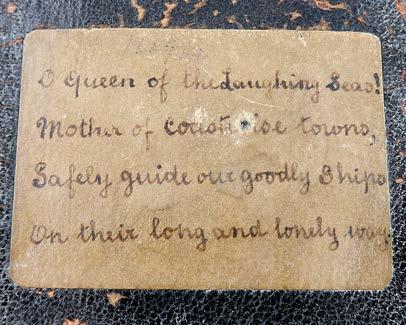 O Queen of the Laughing Seas!
Mother of Coastwise towns,
Safely guide our goodly Ships
On their long and lonely way.